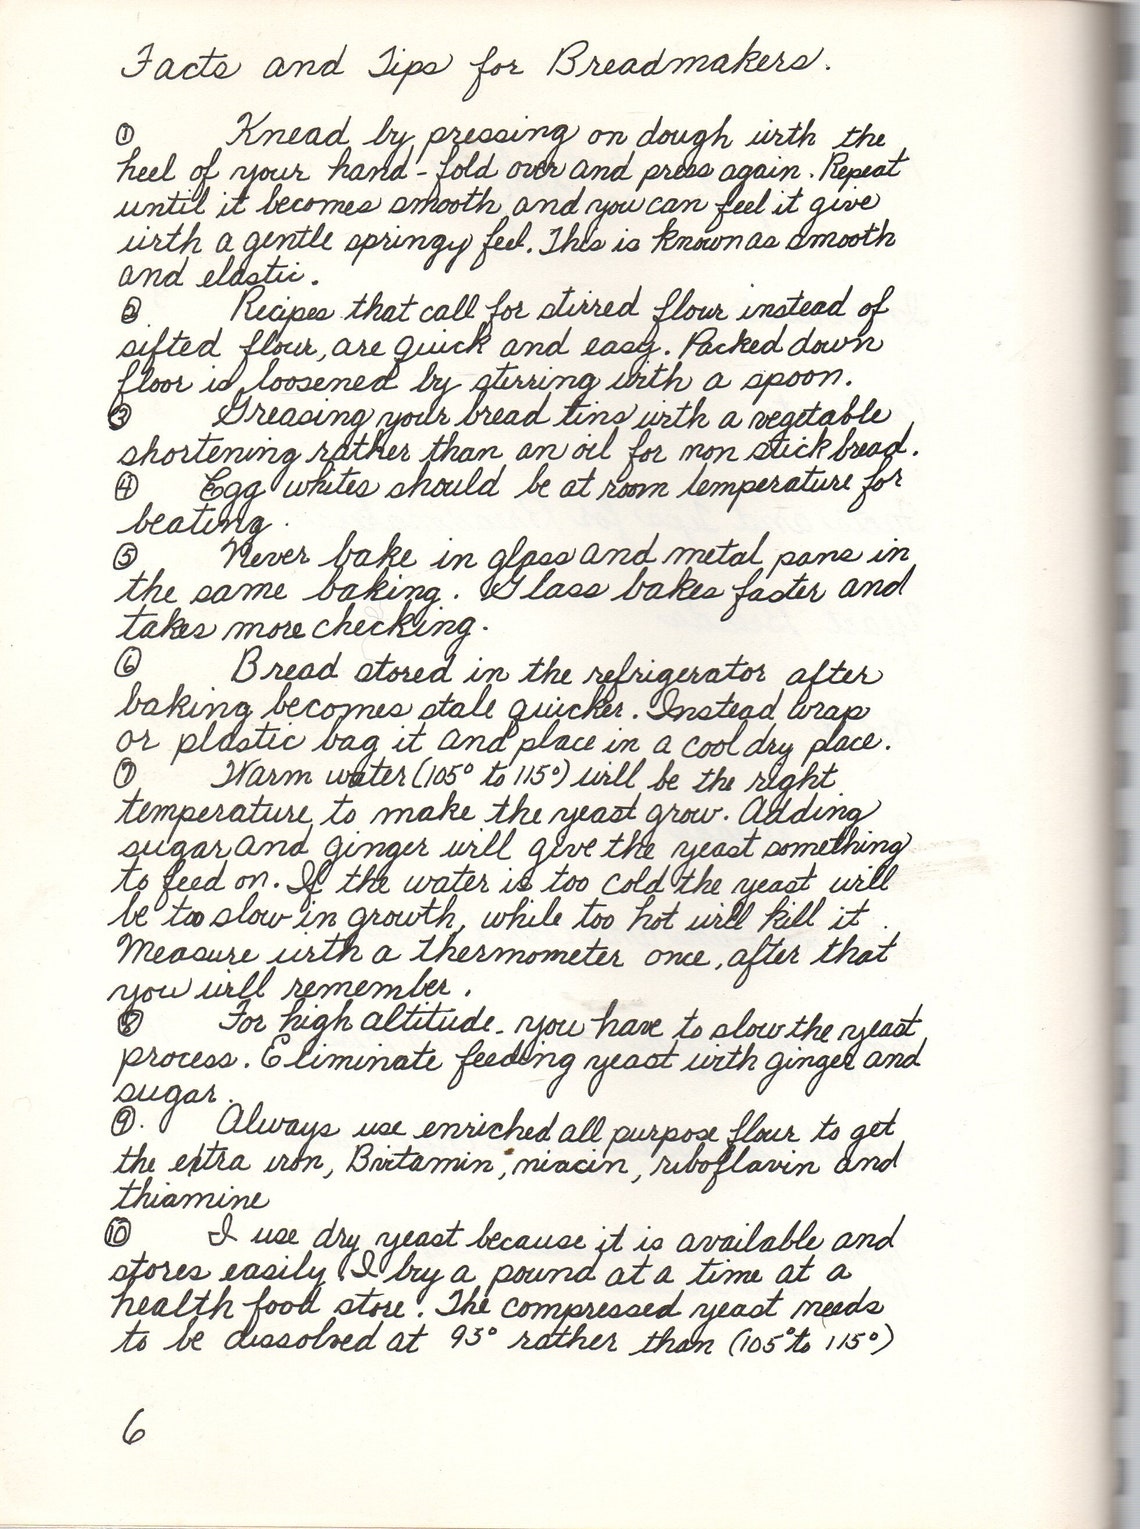 Facts and Tips for Breadmakers.
① Knead by pressing on dough with the
heel of your hand - fold over and press again. Repeat
until it becomes smooth and you can feel it give
with a gentle springy feel. This is known as smooth
and elastic.
② Recipes that call for stirred flour instead of
sifted flour, are quick and easy. Packed down
floor is loosened by stirring with a spoon.
③ Greasing your bread tins with a vegetable
shortening rather than an oil for non stick bread.
④ Egg whites should be at room temperature for
beating.
⑤ Never bake in glass and metal pans in
the same baking. Glass bakes faster and
takes more checking.
⑥ Bread stored in the refrigerator after
baking becomes stale quicker. Instead wrap
or plastic bag it and place in a cool dry place.
⑦ Warm water (105° to 115°) will be the right
temperature to make the yeast grow. Adding
sugar and ginger will give the yeast something
to feed on. If the water is too cold the yeast will
be too slow in growth, while too hot will kill it.
Measure with a thermometer once, after that
you will remember.
⑧ For high altitude - you have to slow the yeast
process. Eliminate feeding yeast with ginger and
sugar.
⑨. Always use enriched all purpose flour to get
the extra iron, B vitamin, niacin, riboflavin and
thiamine
⑩ I use dry yeast because it is available and
stores easily. I buy a pound at a time at a
health food store. The compressed yeast needs
to be dissolved at 93° rather than (105° to 115°)
6